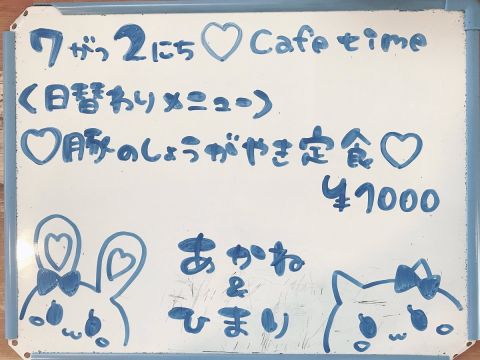 7がつ2にち♡Cafe time
〈日替わりメニュー〉
♡豚のしょうがやき定食♡
¥1000
あかね
&
ひまり